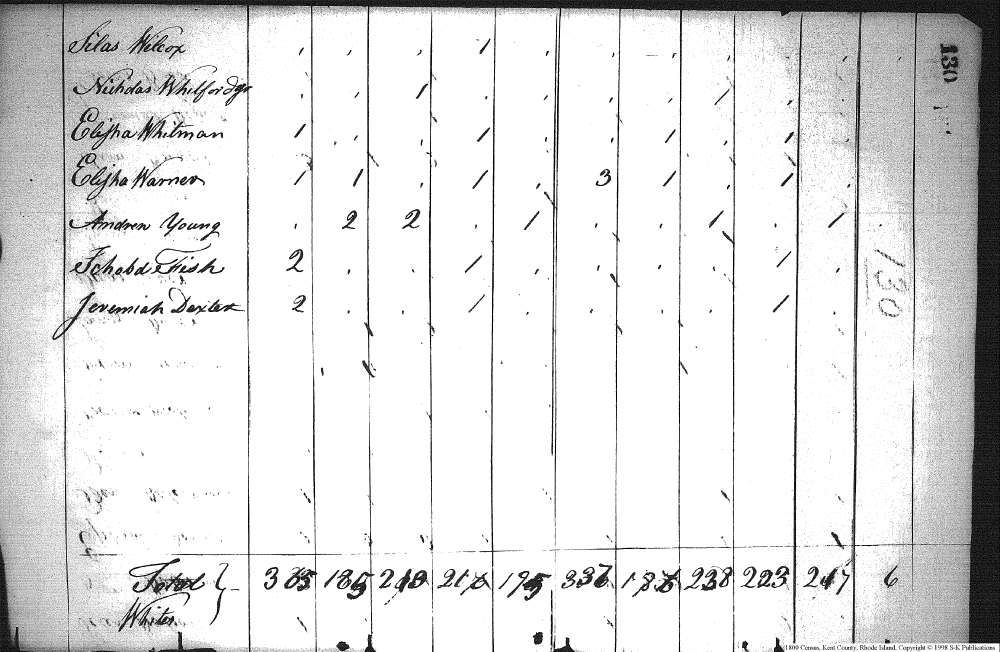 Silas Wilcox , , , 1 , , , , , ,
130
Nicholas Whitford , , 1 , , , , 1 ,
Elisha Whitman 1 , , 1 , , 1 , 1 ,
Elisha Warner 1 1 , 1 , 3 1 , 1 ,
Andrew Young , 2 2 , 1 , , 1 , 1 ,
Ichabd Fish 2 , , 1 , , , , 1 ,
130
Jeremiah Dexter 2 , , 1 , , , , 1 ,
Total 223 6
Whites
1800 Census, Kent County, Rhode Island, Copyright © 1998 S-K Publications